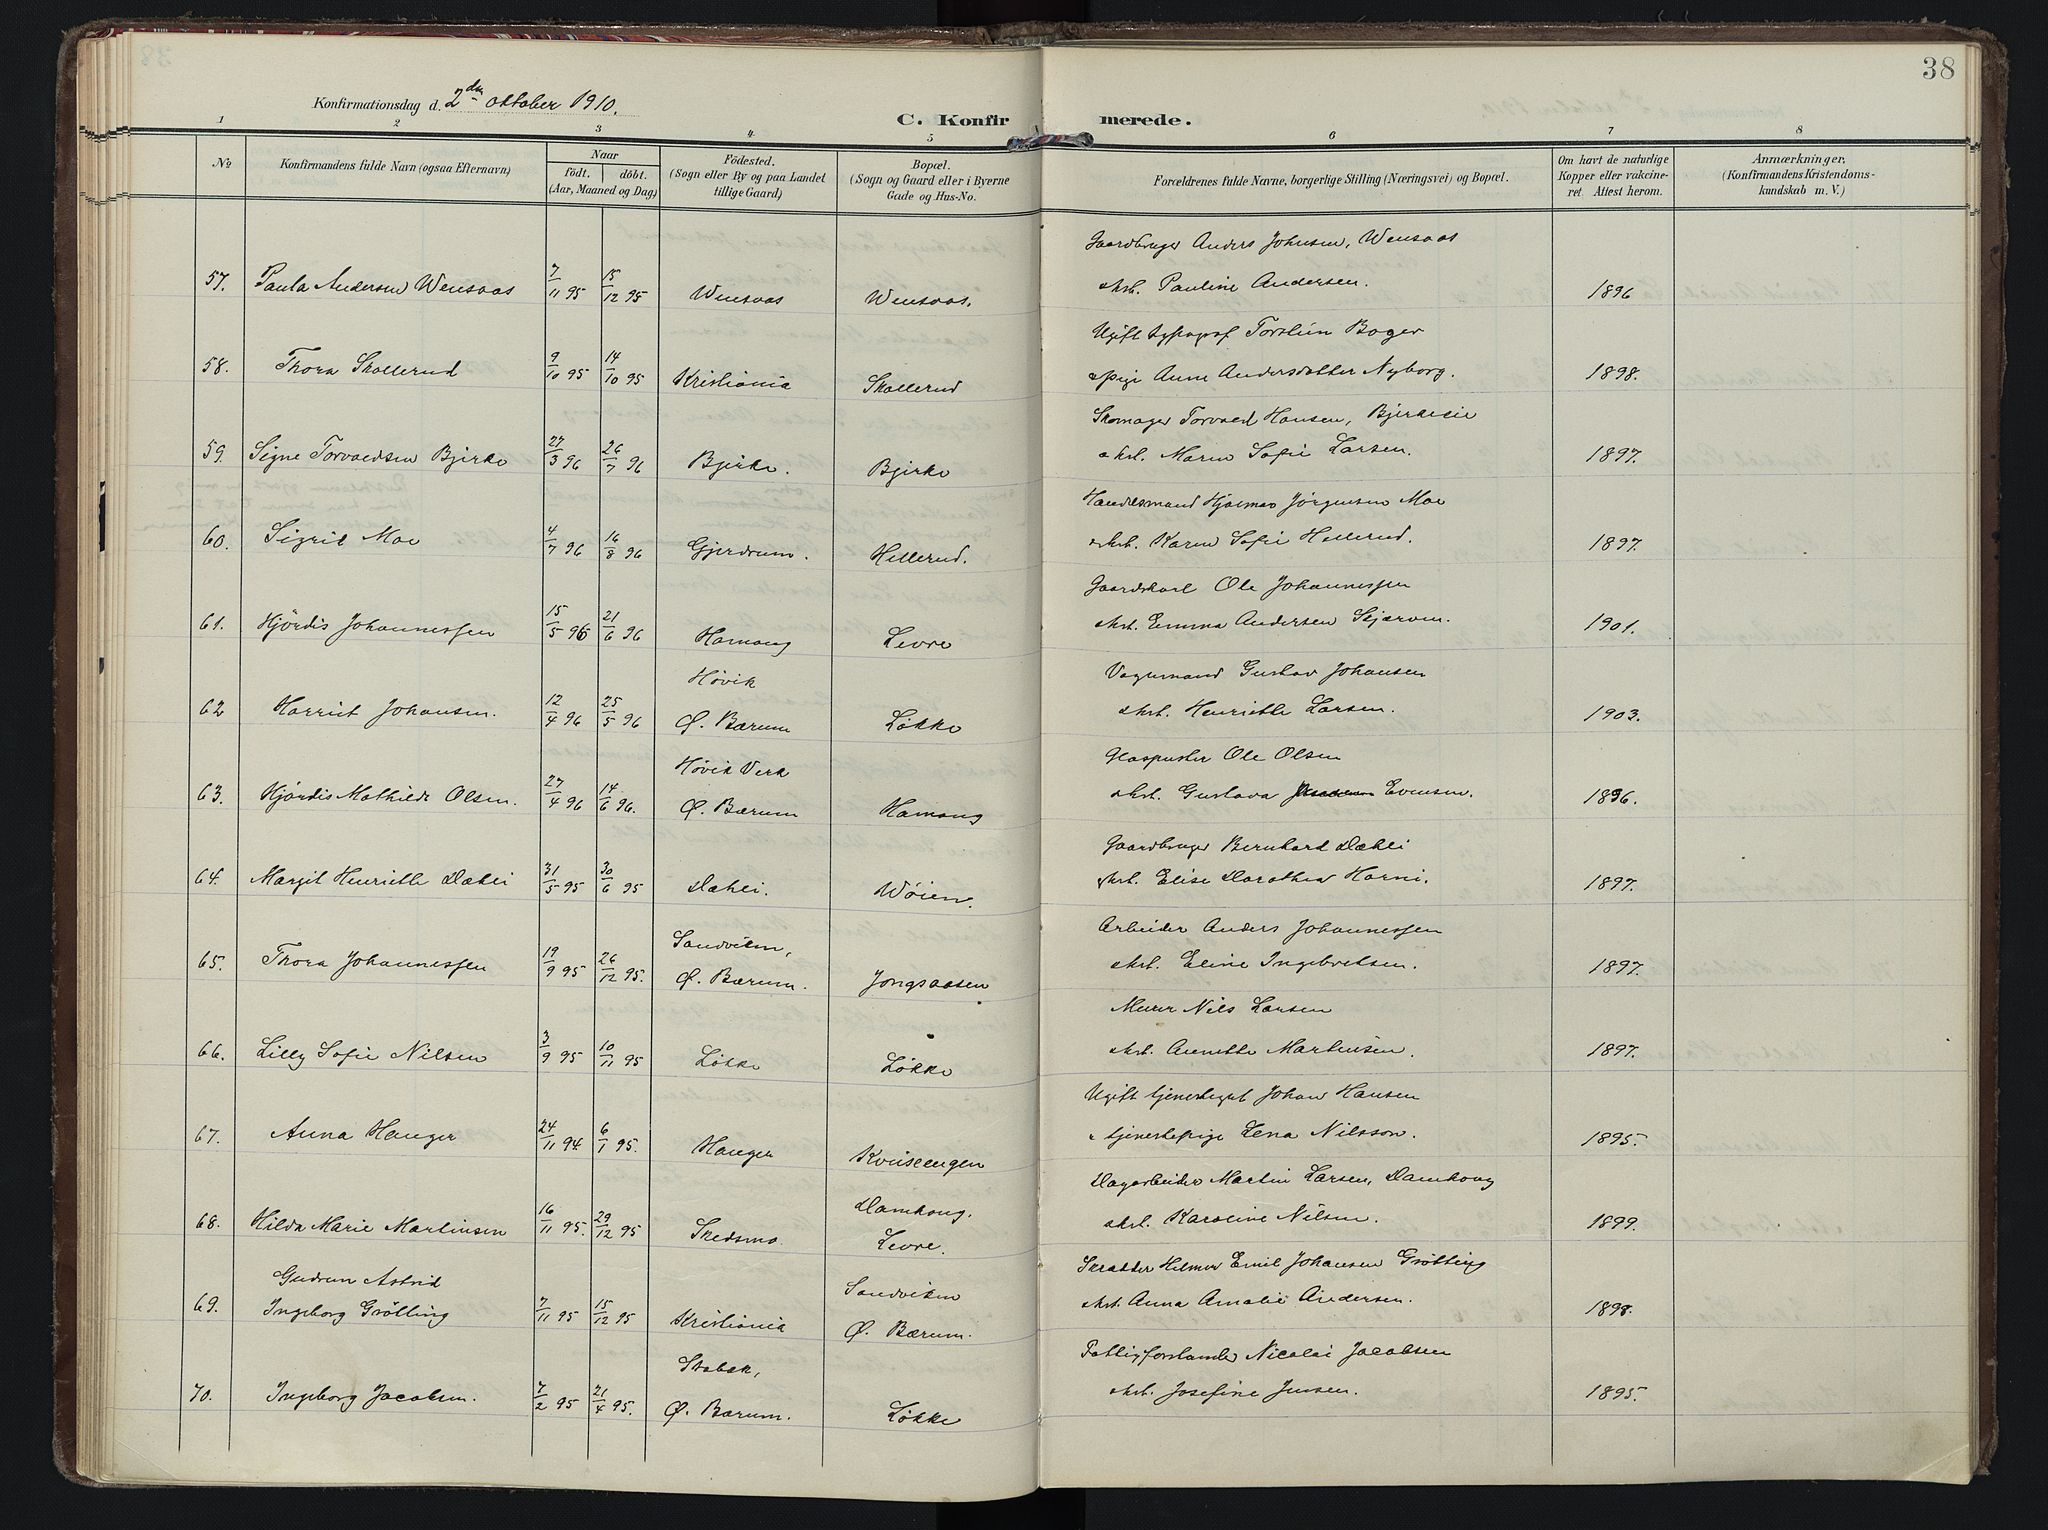 38
Konfirmationsdag d. 2den oktober 1910.
C. Konfirmerede.
1 2 3 4 5 6 7 8
No
Konfirmandens fulde Navn (ogsaa Efternavn)
Naar
født. døbt.
(Aar, Maaned og Dag)
Fødested.
(Sogn eller By og paa Landet
tillige Gaard)
Bopæl.
(Sogn og Gaard eller i Byerne
Gade og Hus-No.
Forældrenes fulde Navne, borgerlige Stilling (Næringsvei) og Bopæl.
Om havt de naturlige
Kopper eller vakcine-
ret Attest herom.
Anmærkninger,
(Konfirmandens Kristendoms-
kundskab m. V.)
Gaardbruger Anders Johnsen, Wensaas
57. Paula Andersen Wensaas 7/11 95 15/12 95 Wensaas Wensaas. Pauline Andersen. 1896
Ugift typograf Torstein Bager
58. Thora Skallerud 9/10 95 14/10 95 Kristiania Skallerud pige Anne Andersdatter Nyborg. 1898.
Skomager Torvald Hansen, Bjerkeeie
59. Signe Torvaldsen Bjerke 27/3 96 26/7 96 Bjerke. Bjerke Maren Sofie Larsen. 1897.
Handelsmand Hjalmar Jørgensen Moe
60. Sigrid Moe 4/7 96 16/8 96 Gjerdrum. Hellerud. Karen Sofie Hellerud. 1897.
Gaardskarl Ole Johannessen
61. Hjördis Johannessen 15/5 96 21/6 96 Hamang Levre Emma Andersen Skjærven. 1901.
Høvik Vognmand Gustav Johansen
62 Harriet Johansen. 12/4 96 25/5 96 Ø. Bærum Løkke Henriette Larsen. 1903.
Høvik Verk Glaspuster Ole Olsen
63. Hjördis Mathilde Olsen. 27/4 96 14/6 96. Ø. Bærum Hamang Gustava Evensen. 1896.
Gaardbruger Bernhard Dæhli
64. Margit Henriette Dæhli 31/5 95 30/6 95 Dæhli. Wøien. Elise Dorothea Horni. 1897.
Sandviken, Arbeider Anders Johannessen
65. Thora Johannessen 19/9 95 26/12 95. Ø. Bærum. Jongsaasen Eline Ingebretsen. 1897.
Murer Nils Larsen
66. Lilly Sofie Nilsen 3/9 95 10/11 95 Løkke Løkke Annette Martinsen. 1897.
Ugift tjenestegut Johan Hansen
67. Anna Hauger 24/11 94. 6/1 95. Hauger tjenestepige Lena Nilsson. 1895.
Damhaug. Dagarbeider Martin Larsen, Damhaug
68. Hilda Marie Martinsen 16/11 95. 29/12 95 Skedsmo. Levre. Karoline Nilsen. 1899.
Gudrun Astrid Sandviken Skrædder Hilmer Emil Johansen Grötting
69. Ingeborg Grötting 7/11 95 15/12 95 Kristiania Ø. Bærum. Anna Amalie Andersen. 1898.
Stabæk, Fattigforstander Nicolai Jacobsen
70. Ingeborg Jacobsen. 7/2 95 21/4 95. Ø. Bærum. Løkke Josefine Jensen. 1895.